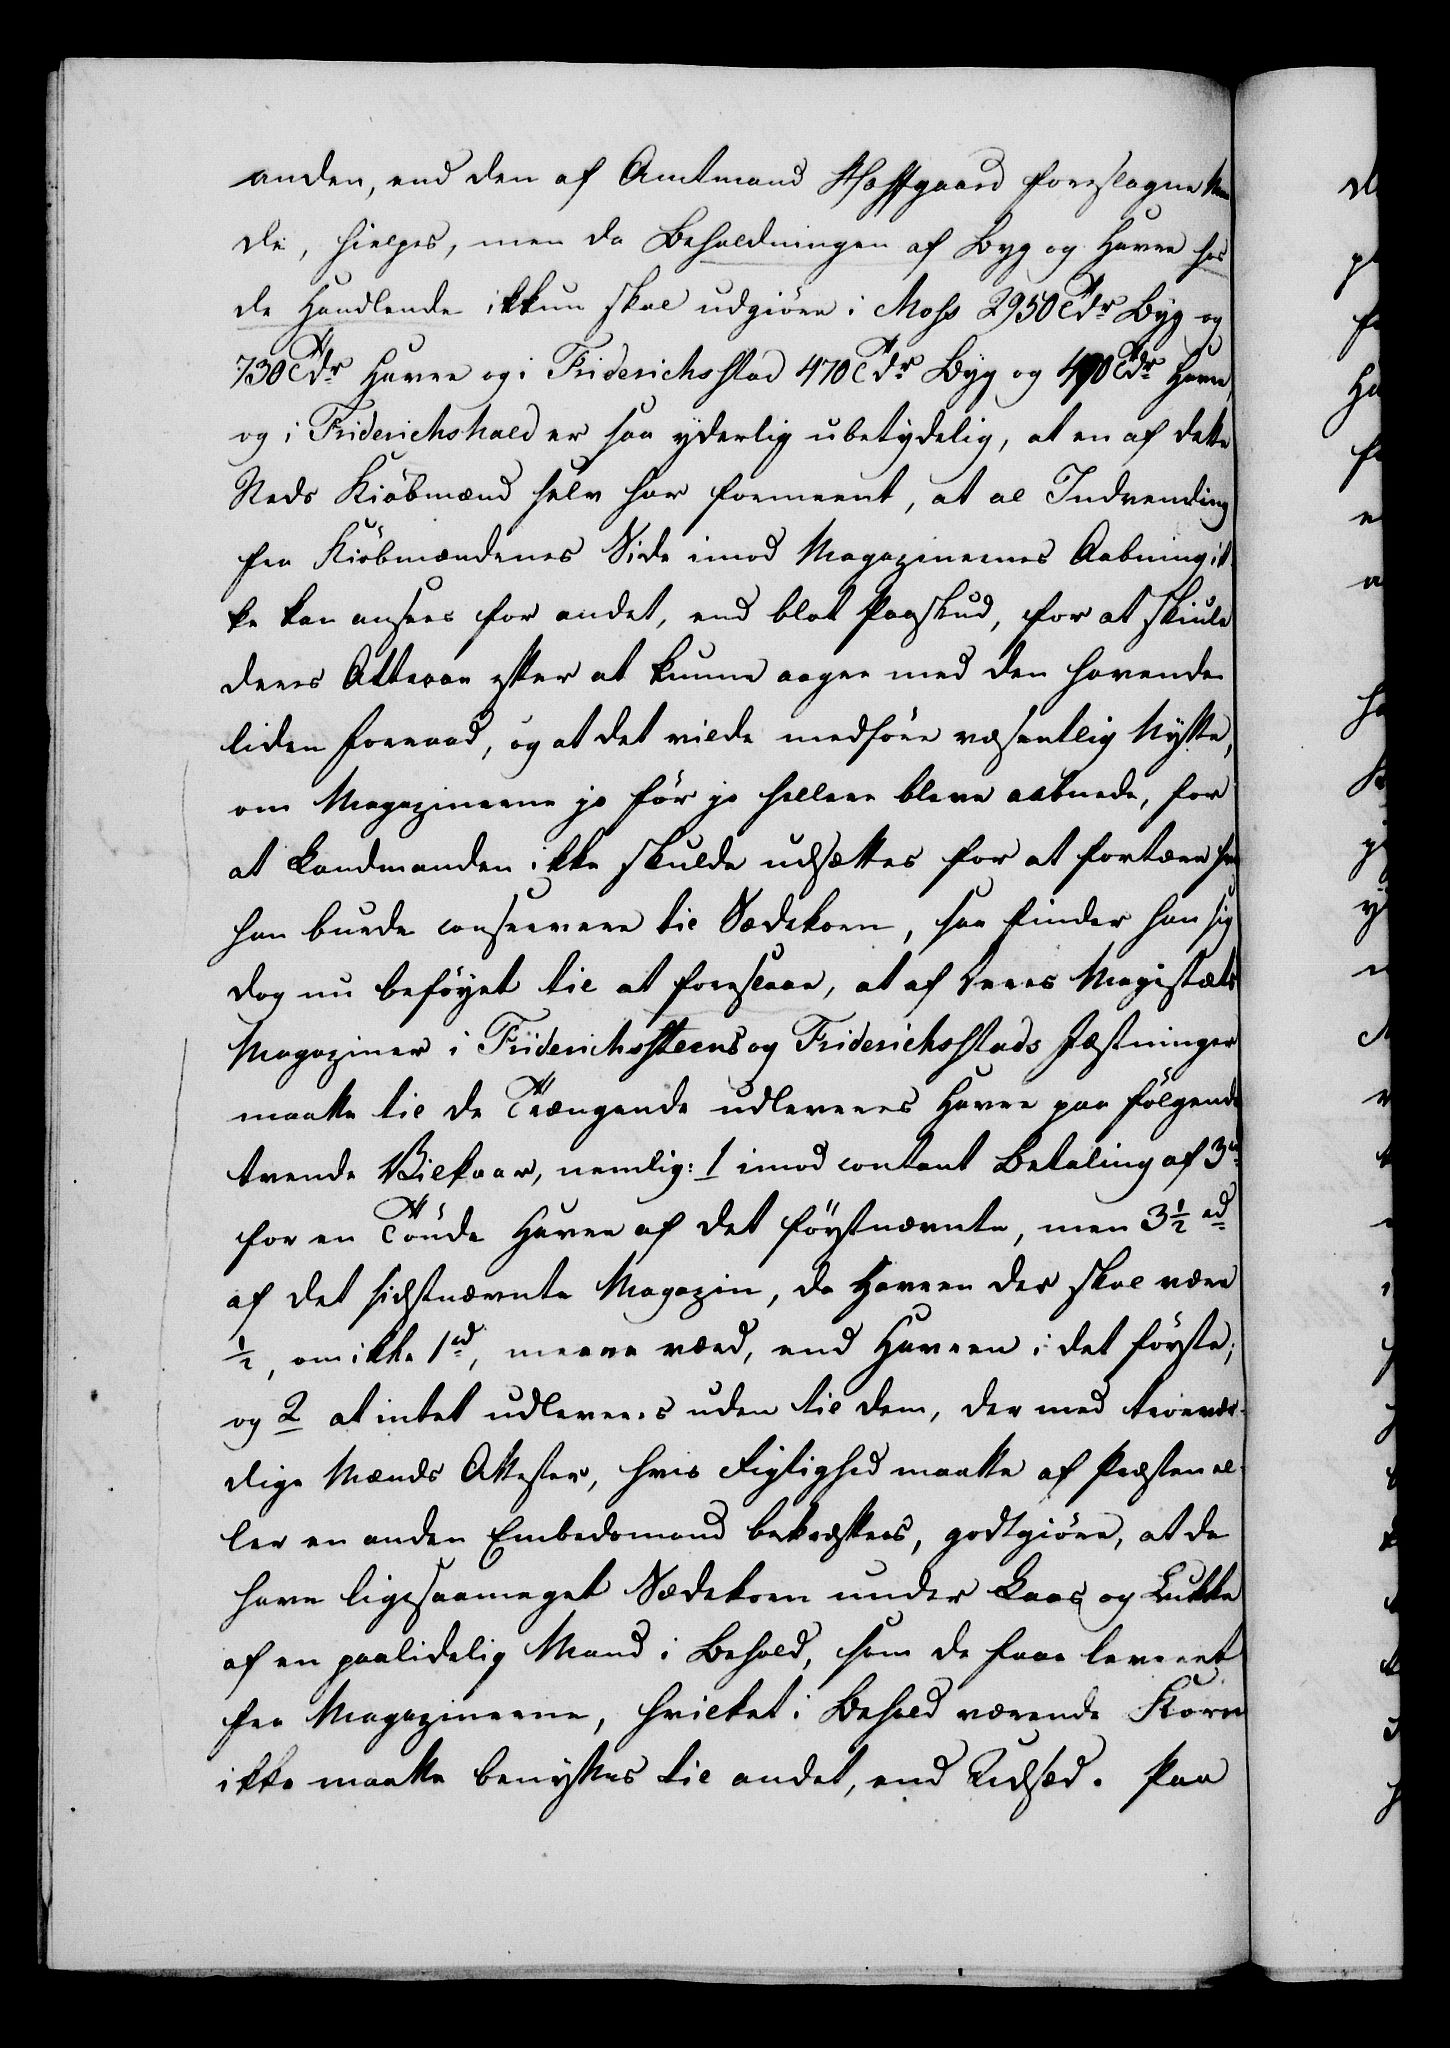 anden, end den af Amtmand Pfaffgaard foreslagne Maa
de, hielpes, men da Beholdningen af Byg og Havre hos
de Handlende ikkun skal udgiøre i Moss 2950 Tdr Byg og
730 Tdr Havre og i Friderichsstad 470 Tdr Byg og 490 Tdr Havre,
og i Friderichshald er saa yderlig ubetydelig, at en af dette
Steds Kiøbmænd selv har formeent, at al Indvending
fra Kiøbmændenes Side imod Magazinernes Aabning ik-
ke kan ansees for andet, end blot Paaskud, for at skiule
deres Attraae efter at kunne aagre med den havende
liden Forraad, og at det vilde medføre væsentlig Nytte,
om Magazinerne jo før jo hellere bleve aabnede, for
at Landmanden ikke skulde udsættes for at fortære hvad
han burde conservere til Sædekorn, saa finder han sig
dog nu beføyet til at foreslaae, at af Deres Majestæts
Magaziner i Friderichssteens og Friderichsstads Fæstninger
maatte til de Trængende udleveres Havre paa følgende
tvende Vilkaar, nemlig: 1 imod contant Betaling af 3 rd
for en Tønde Havre af det førstnævnte, men 3 1/2 rd
af det sidstnævnte Magazin, da Havren der skal være
1/2, om ikke 1 rd, meere værd, end Havren i det første;
og 2 at intet udleveres uden til dem, der med troevær-
dige Mænds Attester, hvis Rigtighed maatte af Præsten el-
ler en anden Embedsmand bekræftes, godtgiøre, at de
have ligesaameget Sædekorn under Laas og Lukke
af en paalidelig Mand i Behold, som de faae leveret
fra Magazinerne, hvilket i Behold værende Korn
ikke maatte benyttes til andet, end Udsæd. Paa